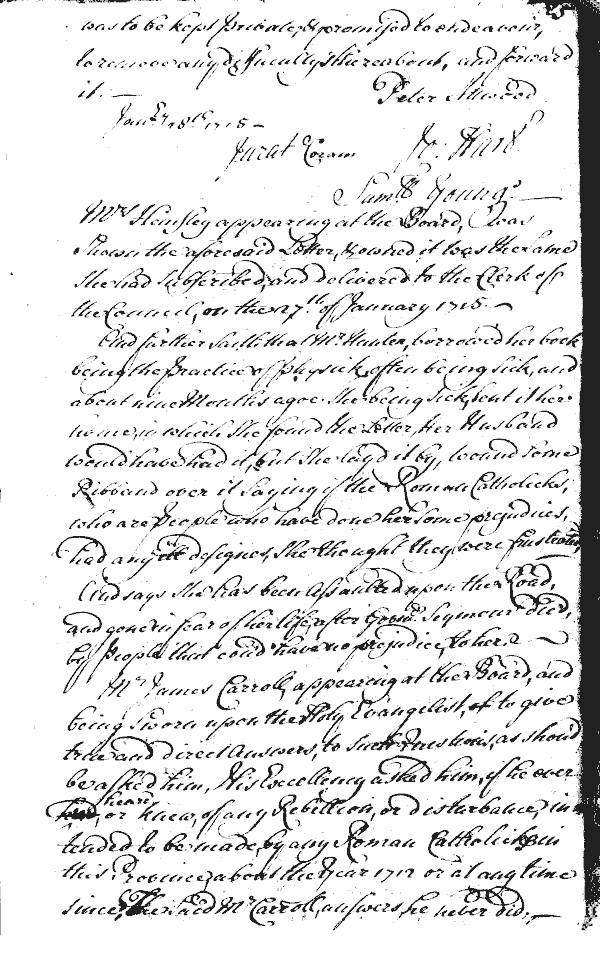 25
was to be kept private, & promised to endeavour,
to remove any difficultys thereabout, and forward
it. —
Peter Attwood
Jan.ry 28th 1715 —
Jurat Coram Jo: Hart
Samll Young
Mrs Hemsley appearing at the Board, was
Shown the aforesaid Letter, & owned it was the Same
She had Subscribed, and delivered to the Clerk of
the Council, on the 27th of January 1715. —
And further saith that Mr borrowed her book
being the Practice of Physick, often being sick, and
about nine Months agoe She being sick, sent it her
home, in which She found the Letter, her Husband
would have had it, but She lay'd it by, & wound some
Ribband over it Saying if the Roman Catholicks,
who are People who have done her some prejudices,
had any ill designes, She thought they were frustrated,
And says She has been assaulted upon the Road,
and gone in fear of her life, after Govr Seymour died,
by People that could have no prejudice, to her. —
Mr James Carroll, appearing at the Board, and
being Sworn upon the Holy Evangelist, to give
true and direct Answers, to such Questions, as should
be asked him, His Excellency asked him, if he ever
heard
or knew, of any Rebellion, or disturbance, in
tended to be made, by any Roman Catholicks in
this Province, about the Year 1712 or at any time
since, The Said Mr Carroll, answers, he never did; —